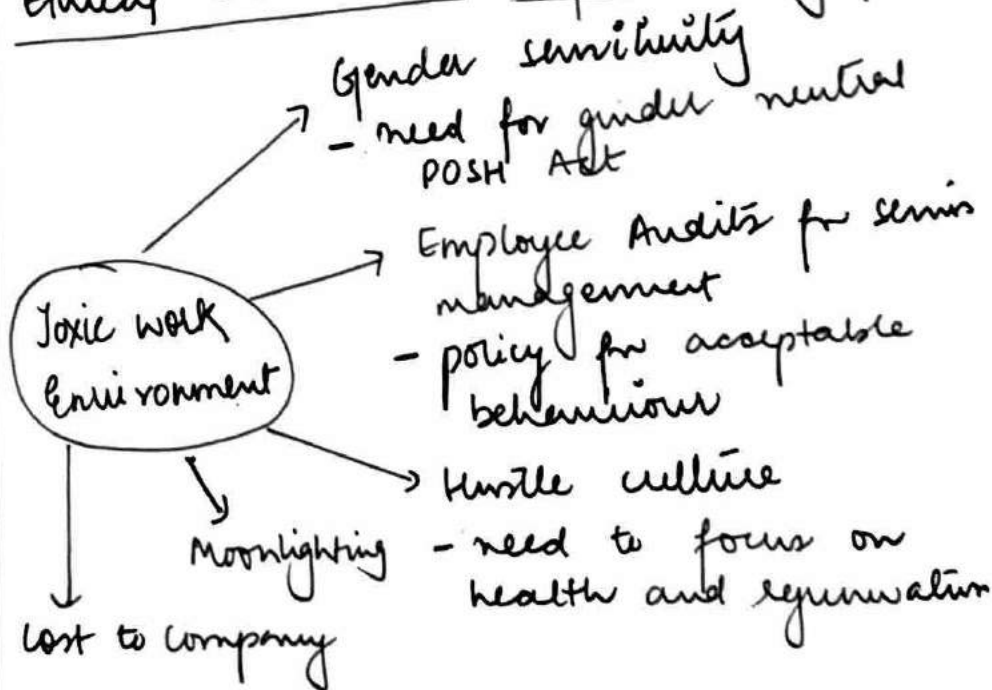 Ethical
Gender sensitivity
- need for gender neutral
POSH Act
Employee Audits for senior
management
- policy for acceptable
behaviour
Toxic work
Environment
Hustle culture
- need to focus on
health and rejuvenation
Moonlighting
Cost to company